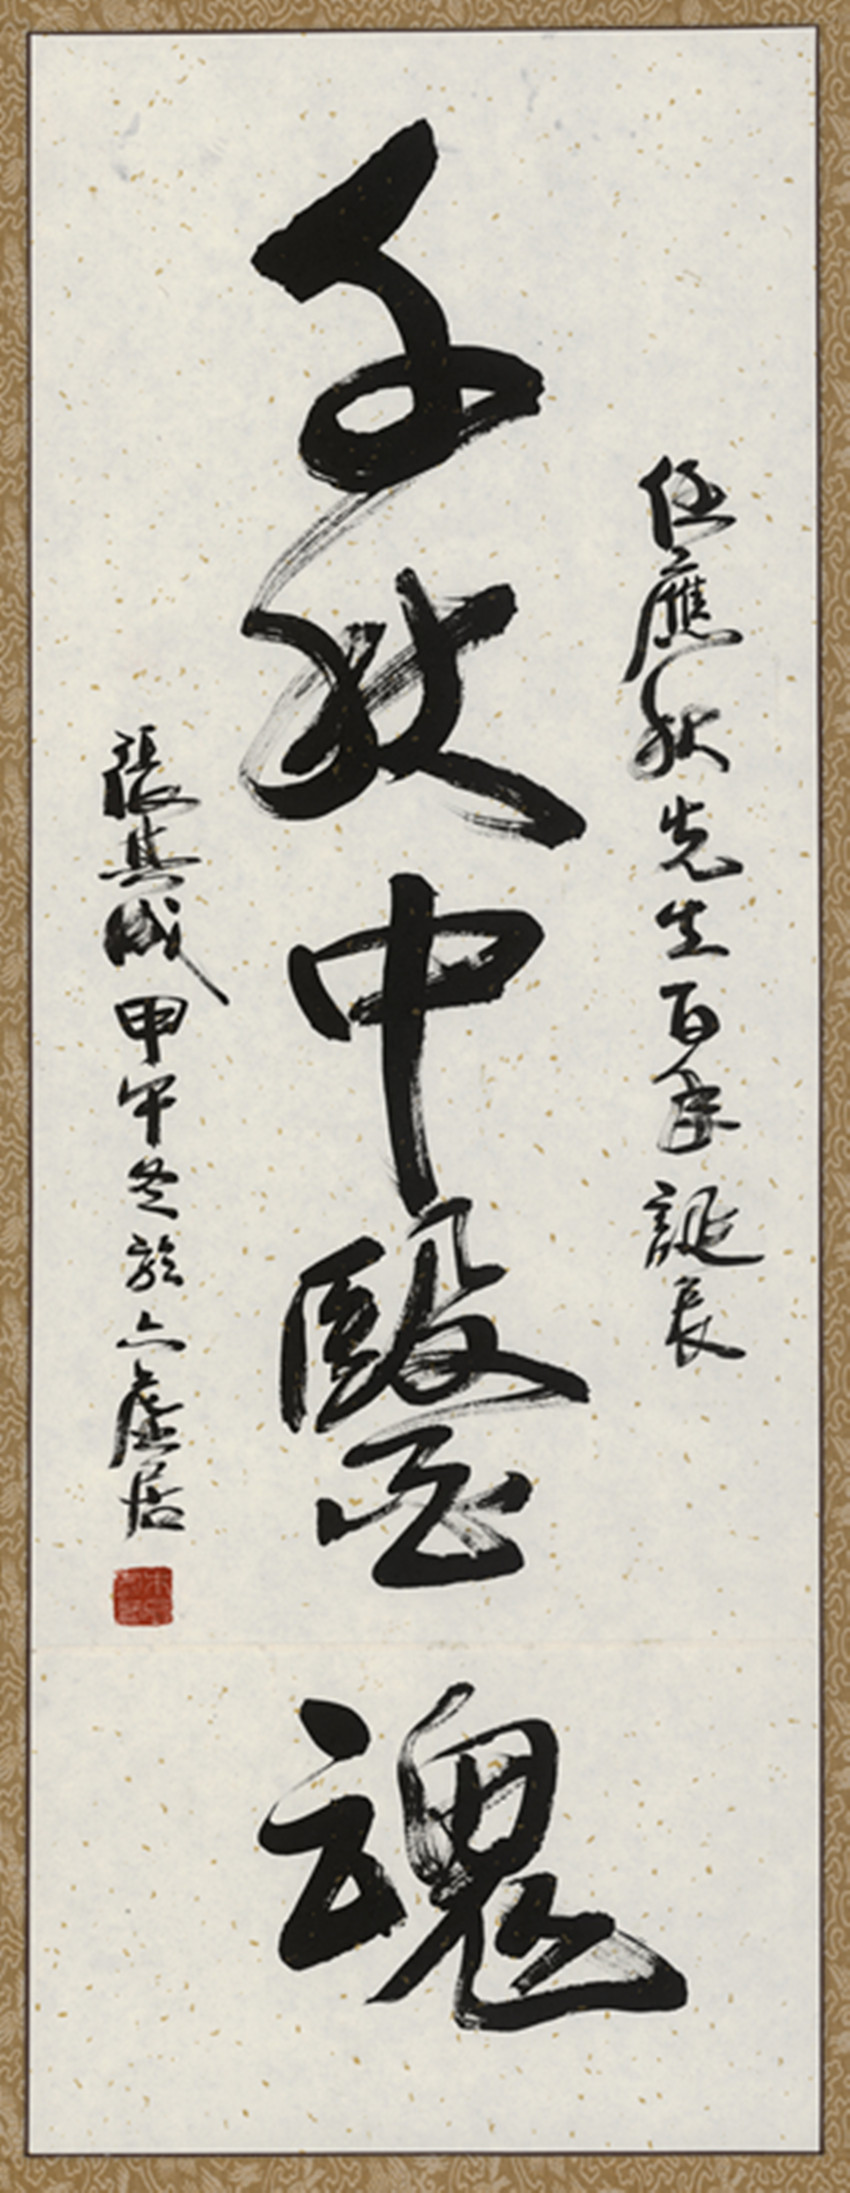 任應秋先生百年誕辰
千秋中醫魂
張其成甲午冬於六虛居